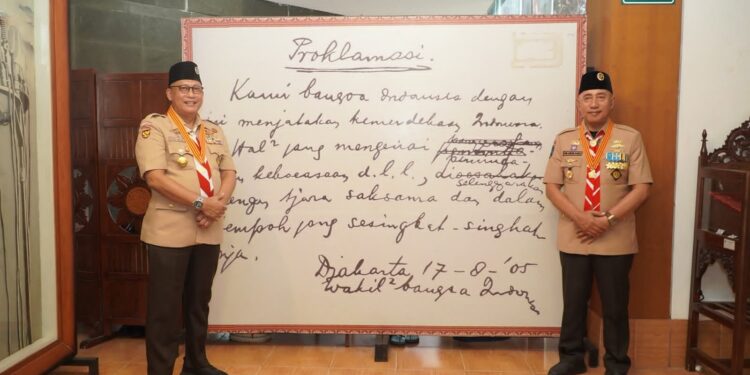 Proklamasi.
Kami bangsa Indonesia dengan
ini menjatakan kemerdekaan Indonesia.
Hal² jang mengenai
pemindahan
kekoeasaan d.l.l.,
diselenggarakan
dengan tjara saksama dan dalam
tempoh jang sesingkat-singkat
nja.
Djakarta 17-8-'05
Wakil² bangsa Indonesia